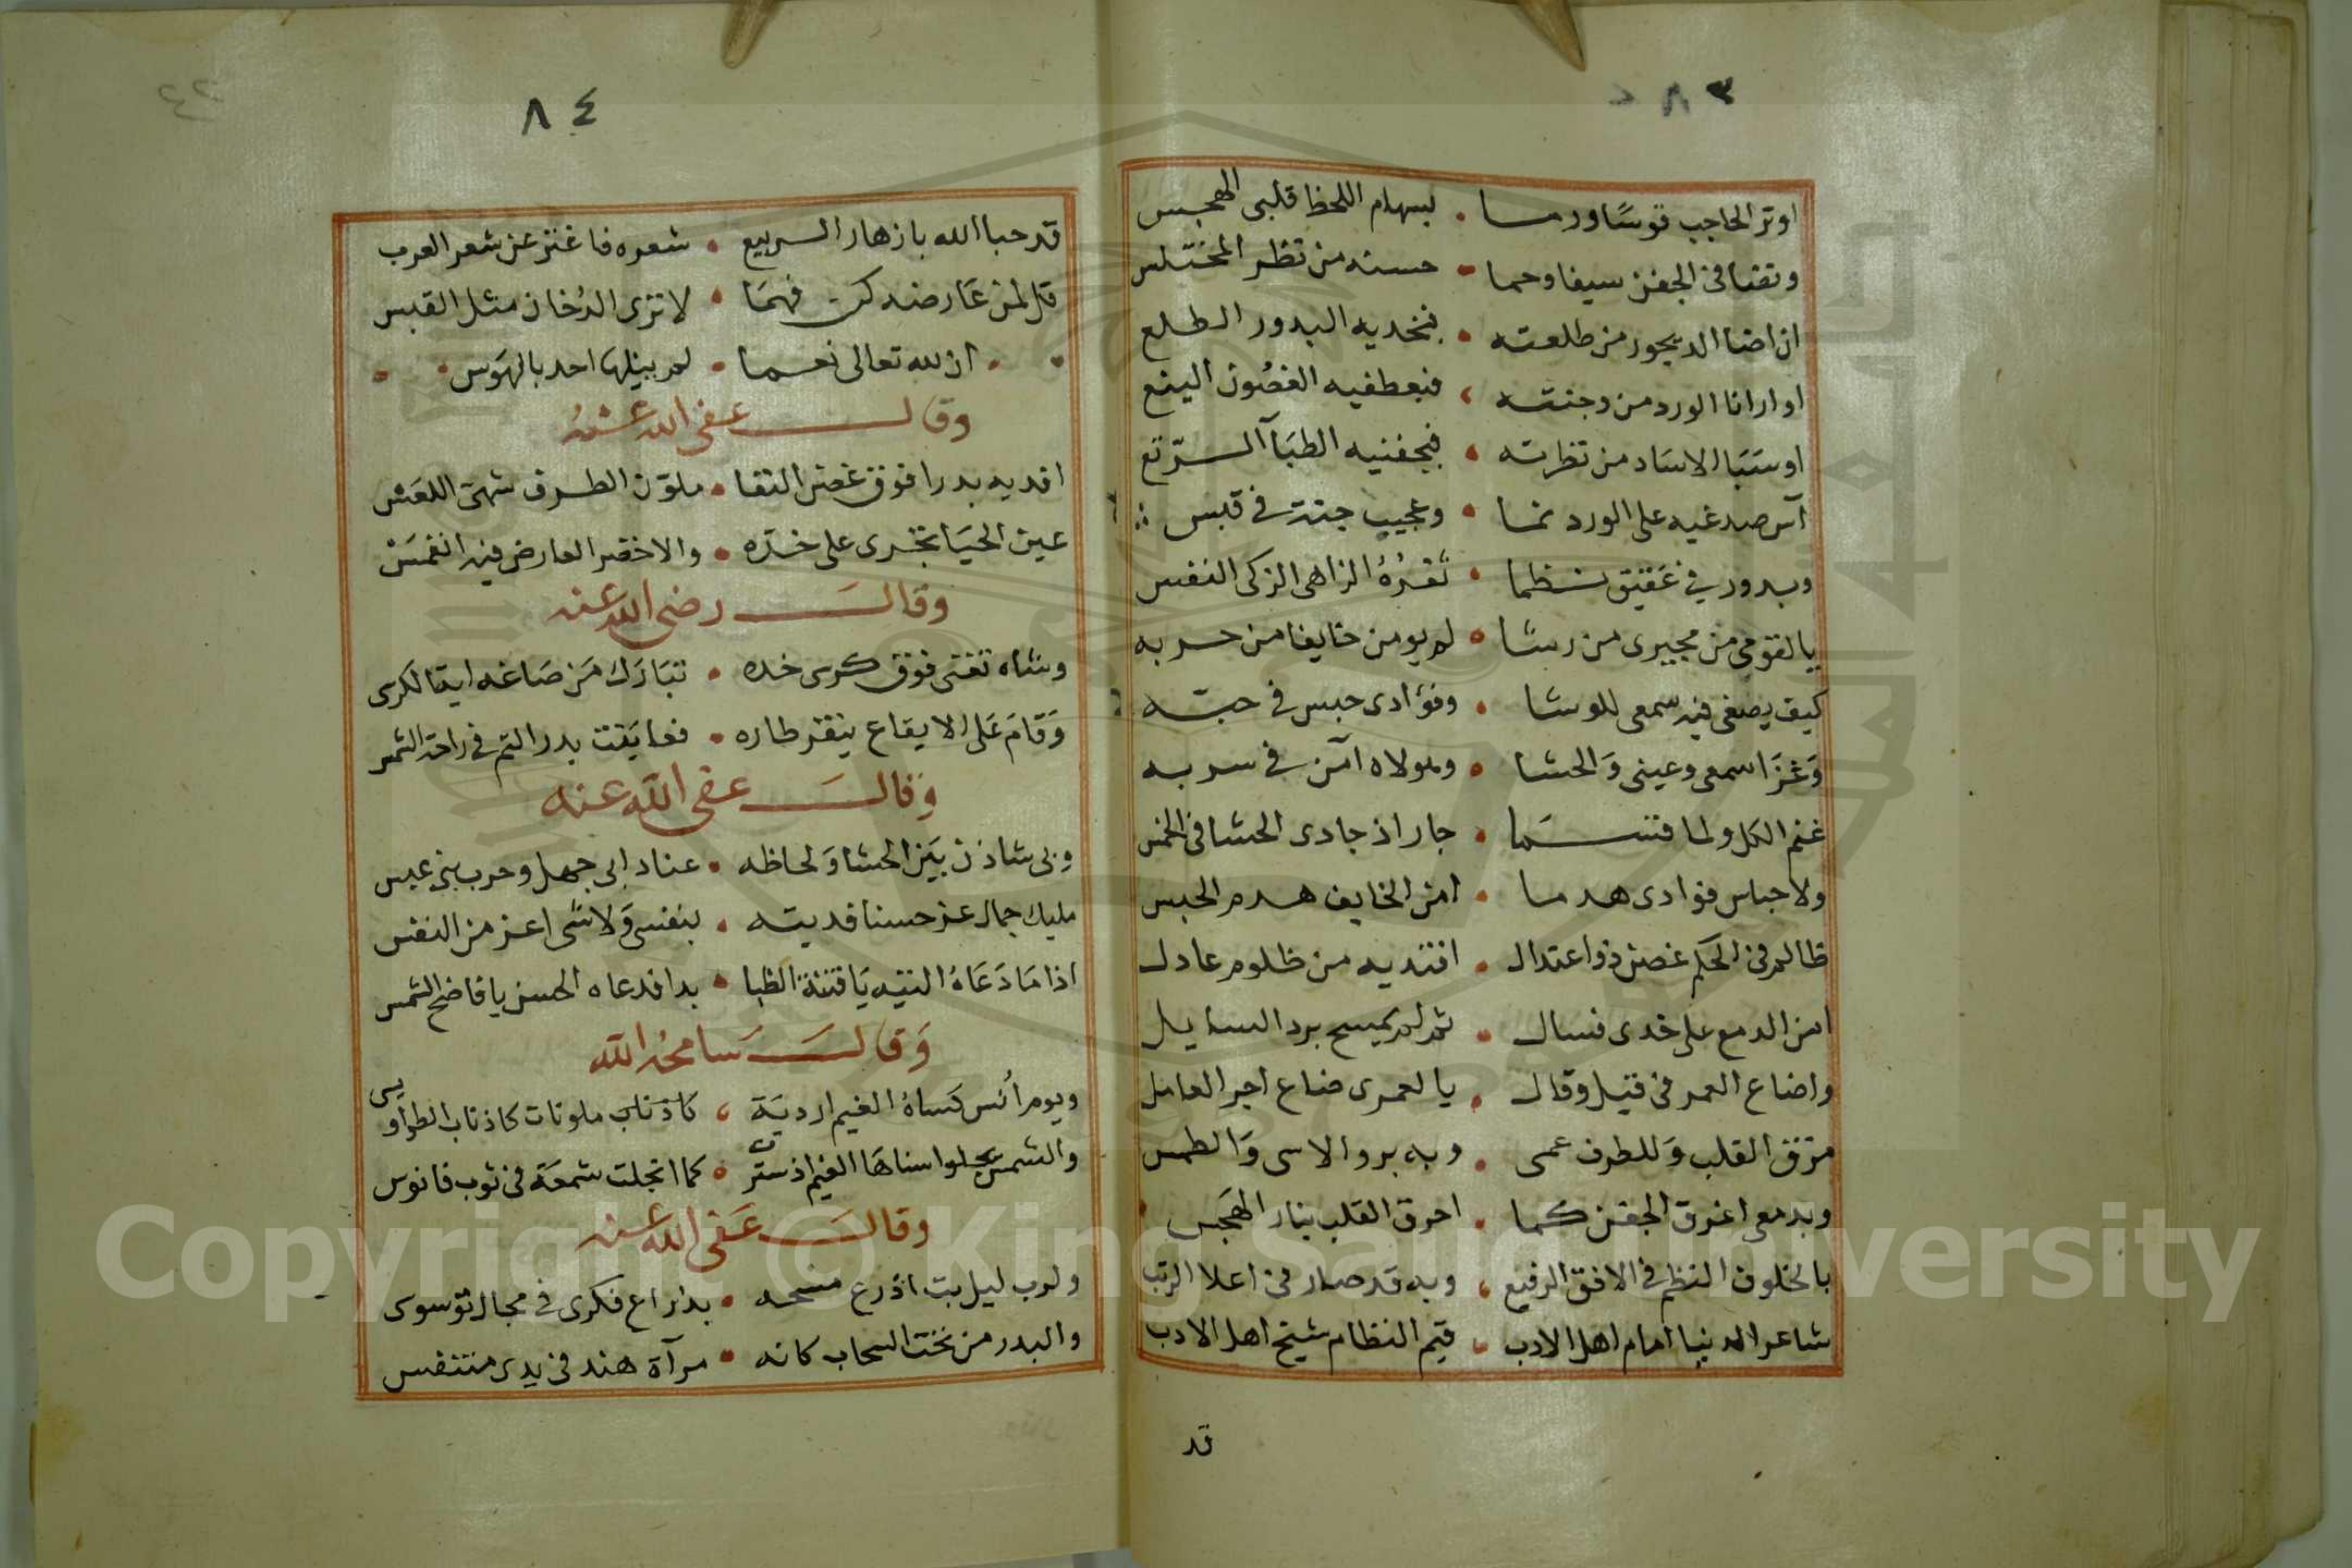 ٨٣
اوتر الحاجب قوسًا ورما • بسهام اللحظ قلبى المهجس
وتقنا فى الجفن سيفا وحما • حسنه من نظر المختلس
ان اضا الديجور من طلعته • فبخديه البدور الطلع
او ارانا الورد من وجنته • فبعطفيه الغصُون الينع
او سَبَا الاسَاد من نظرته • فبجفنيه الظبَآ الرّتع
آس صدغيه على الورد نما • وعجيب جنة فى قبس
وبدور فى عَقيق نظما • ثغرُهُ الزاهى الزكى النفس
يا لقومى من مجيرى من رشا • لم يومن خايفا من حربه
كيف يصغى فيه سمعى للوشا • وفؤادى حبس فى حبّه
وَغزَا سمعى وعينى وَالحشا • ومولاه آمن فى سربه
غنم الكل ولما قسَما • جار اذ جادى الحشا فى الخمس
ولاحباس فوادى هدما • امن الخايف هدم الحبس
ظالم فى الحكم غصن ذو اعتدال • افتديه من ظلوم عادل
امن الدمع على خدى فسال • ثم لم يمسح برد السايل
واضاع العمر فى قيل وقال • يا لعمرى ضاع اجر العامل
مزق القلب وَللطرف عمى • وبه بروا الاسى وَالطمس
وبدمعى اغرق الجفن كما • احرق القلب بنار الهَجس
بالخلوف النظم فى الافق الرفيع • وبه قد صار فى اعلا الرتب
شاعر الدنيا امام اهل الادب • قيم النظام شيخ اهل الادب
قد
٨٤
قد حبا الله بازهار الربيع • شعره فاغتنى عن شعر العرب
قل لمن عَارضه كن فهمَا • لا ترى الدُخان مثل القبس
ان لله تعالى نعما • لم ينيلها احد بالهوَس
وقال عفى الله عنهُ
افديه بدرا فوق غصن النقا • ملوّن الطرف شهىّ اللعَس
عين الحيَا تجرى على خدّه • والاخضر العارض فيه انغمسَ
وقالَ رضى الله عنه
وشاه تغنى فوق كرسى خده • تبَارَك مَن صَاغه ايقا لكرسى
وَقامَ عَلى الايقاع ينقر طاره • فعايَنت بدر التم فى راحة الشمس
وَقالَ عفى الله عنه
وبى شاذن بَين الحشا وَلحاظه • عناد ابى جهل وحرب بنى عبس
مليك جمال عز حسنا فديته • بنفسى وَلا شى اعز من النفس
اذا مَا دَعَاهُ التيه يَا فتنة الظبا • بدا فدعاه الحسن يا فاضح الشمس
وَقالَ سَامحهُ الله
ويوم اُنس كسَاهُ الغيم اردية • كاذناب ملونات كاذناب الطواويس
والشمس يجلوا سناهَا الغيم اذ سترت • كما انجلت شمعَة فى ثوب فانوس
وقالَ عَفى الله عنه
ولرب ليل بت اذرع منسحه • بذراع فكرى فى مجال توسوى
والبدر من تحت السحاب كانه • مرآة هند فى يدى متنفس
Copyright © King Saud University